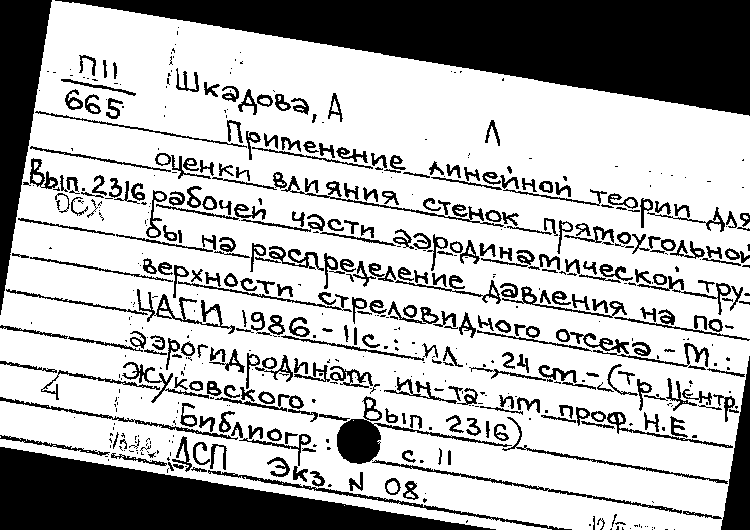 П11
665
Шкадова, А
Л
Применение линейной теории для
оценки влияния стенок прямоугольной
Вып. 2316 рабочей части аэродинамической тру-
ОСХ
бы на распределение давления на по-
верхности стреловидного отсека.-М.:
ЦАГИ, 1986.-11с.: ил .; 24 см.-(Тр. Центр.
аэрогидродинам. ин-та им. проф. Н.Е.
Жуковского; Вып. 2316).
4
Библиогр.: с. 11
ДСП Экз. N 08.